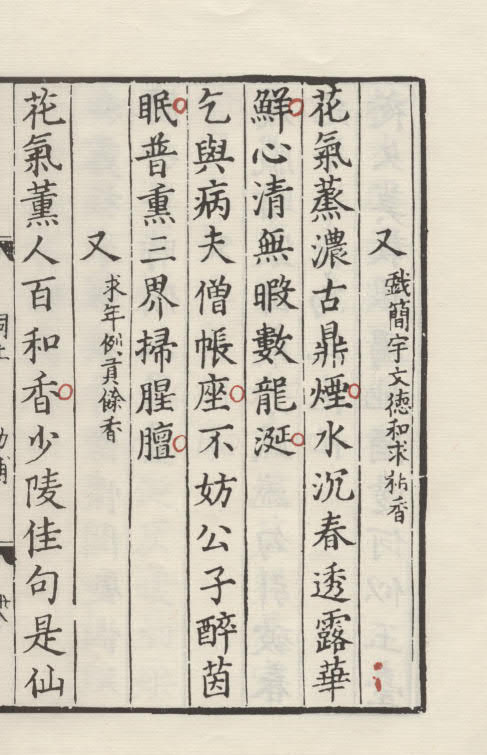 又 戲簡宇文德和求㪽香
花氣蒸濃古鼎煙水沉春透露華
鮮心清無暇數龍涎
乞與病夫僧帳座不妨公子醉茵
眠普熏三界掃腥膻
又 求年例貢餘香
花氣薰人百和香少陵佳句是仙